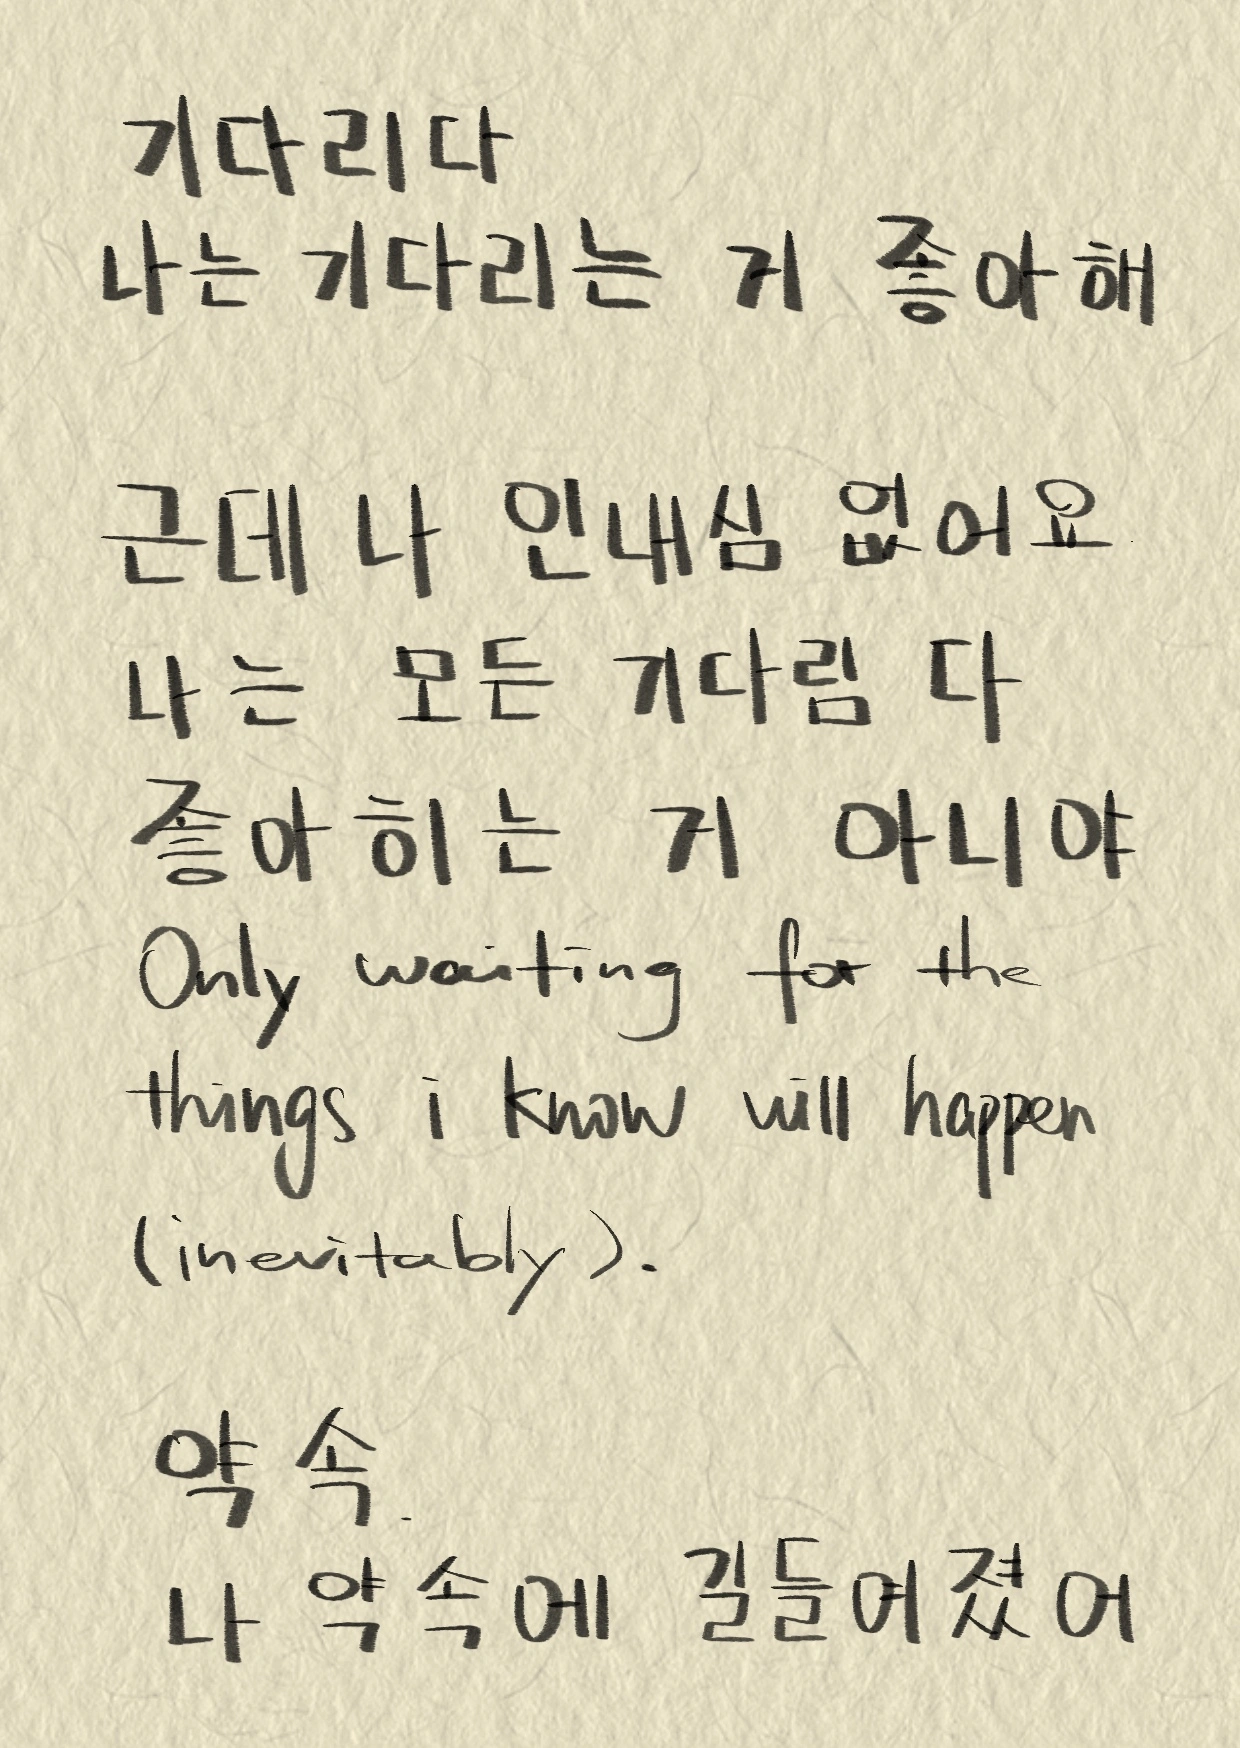 기다리다
나는 기다리는 거 좋아해
근데 나 인내심 없어요
나는 모든 기다림 다
좋아히는 거 아니야
Only waiting for the
things i know will happen
(inevitably).
약속.
나 약속에 길들어졌어